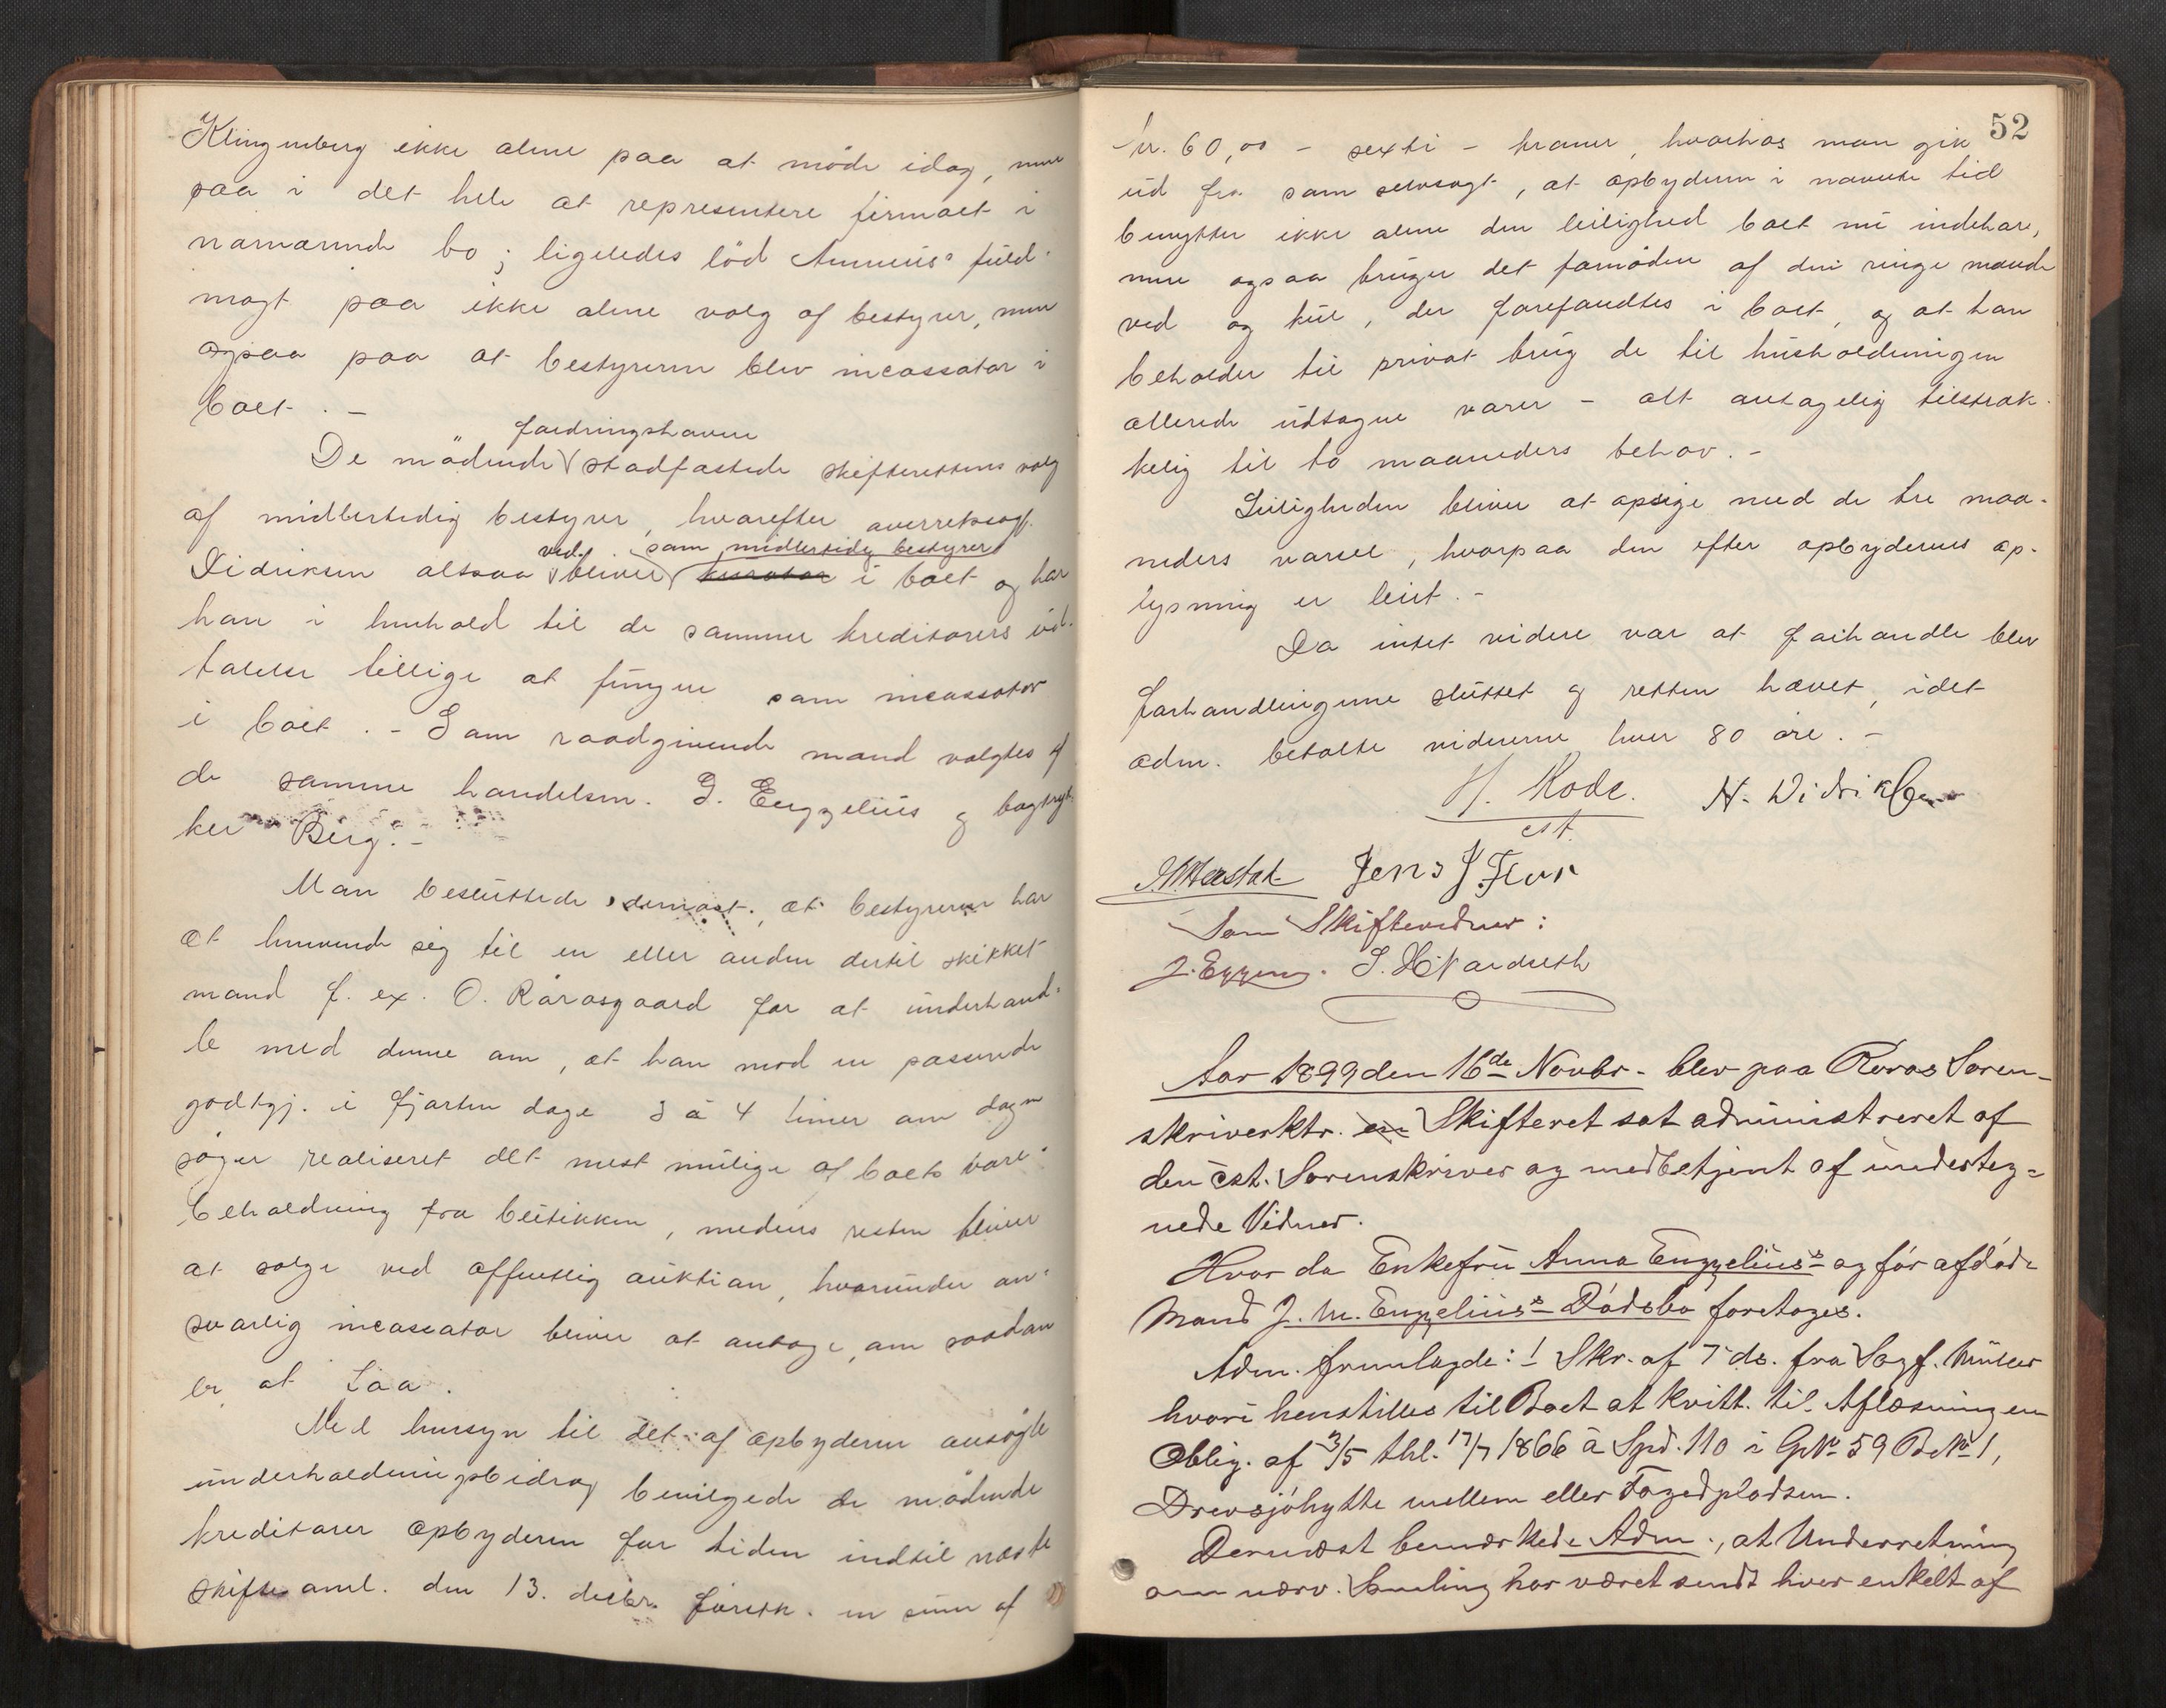 Klingenberg ikke alene paa at møde idag, men
paa i det hele at representere firmaet i
nærværende bo; ligeledes lød Annæus' fuld-
magt paa ikke alene valg af bestyrer, men
ogsaa paa at bestyreren blev incassator i
boet. -
fordringshavere
De mødende stadfæstede skifterettens valg
af midlertidig bestyrer, hvorefter overretssagf.
ved. som midlertidig bestyrer
Didriksen altsaa bliver kurator i boet og har
han i henhold til de samme kreditorers ud-
talelse tillige at fungere som incassator
i boet. - Som raadgivende mænd valgtes af
de samme handelsm. G. Engzelius og bogtryk-
ker Berg. -
Man besluttede dernæst, at bestyreren har
at henvende sig til en eller anden dertil skikket
mand f. ex. O. Rørosgaard for at underhand-
le med denne om, at han mod en passende
godtgj. i fjorten dage 3 à 4 timer om dagen
søger realiseret det mest mulige af boets vare-
beholdning fra butikken, medens resten bliver
at sælge ved offentlig auktion, hvorunder an-
svarlig incassator bliver at antage, om saadan
er at faa.
Med hensyn til det af opbyderen ansøgte
underholdningsbidrag bevilgede de mødende
kreditorer opbyderen for tiden indtil næste
skiftesaml. den 13. decbr. førstk. en sum af
52
kr. 60,00 - sexti - kroner, hvorhos man gik
ud fra som selvsagt, at opbyderen i nævnte tid
benytter ikke alene den leilighed boet nu indehar,
men ogsaa bruger det fornødne af den ringe mængde
ved og kul, der forefandtes i boet, og at han
beholder til privat brug de til husholdningen
allerede udtagne varer - alt antagelig tilstræk-
kelig til to maaneders behov. -
Leiligheden bliver at opsige med de tre maa-
neders varsel, hvorpaa den efter opbyderens op-
lysning er leiet. -
Da intet videre var at forhandle blev
forhandlingerne sluttet og retten hævet, idet
adm. betalte vidnerne hver 80 øre. -
H. Rode. N. Didriksen
cst.
Jens J Flor
Som Skiftevidner:
J. Eggen.
Aar 1899 den 16de Novbr. blev paa Røros Soren-
skriverktr. en Skifteret sat administreret af
den cst. Sorenskriver og medbetjent af underteg-
nede Vidner.
Hvor da Enkefru Anna Engzelius's og før afdøde
Mand J. M. Engzelius's Dødsbo foretoges.
Adm. fremlagde: 1 Skr. af 7 ds. fra Sagf. Müller
hvori henstilles til Boet at kvitt. til Aflæsning en
Oblig. af 3/5 thl. 17/7 1866 à Spd. 110 i GNo 59 BNo 1,
Drevsjøhytte mellem eller Fogedpladsen.
Dernæst bemærkede Adm., at Underretning
om nærv. Samling har været sendt hver enkelt af